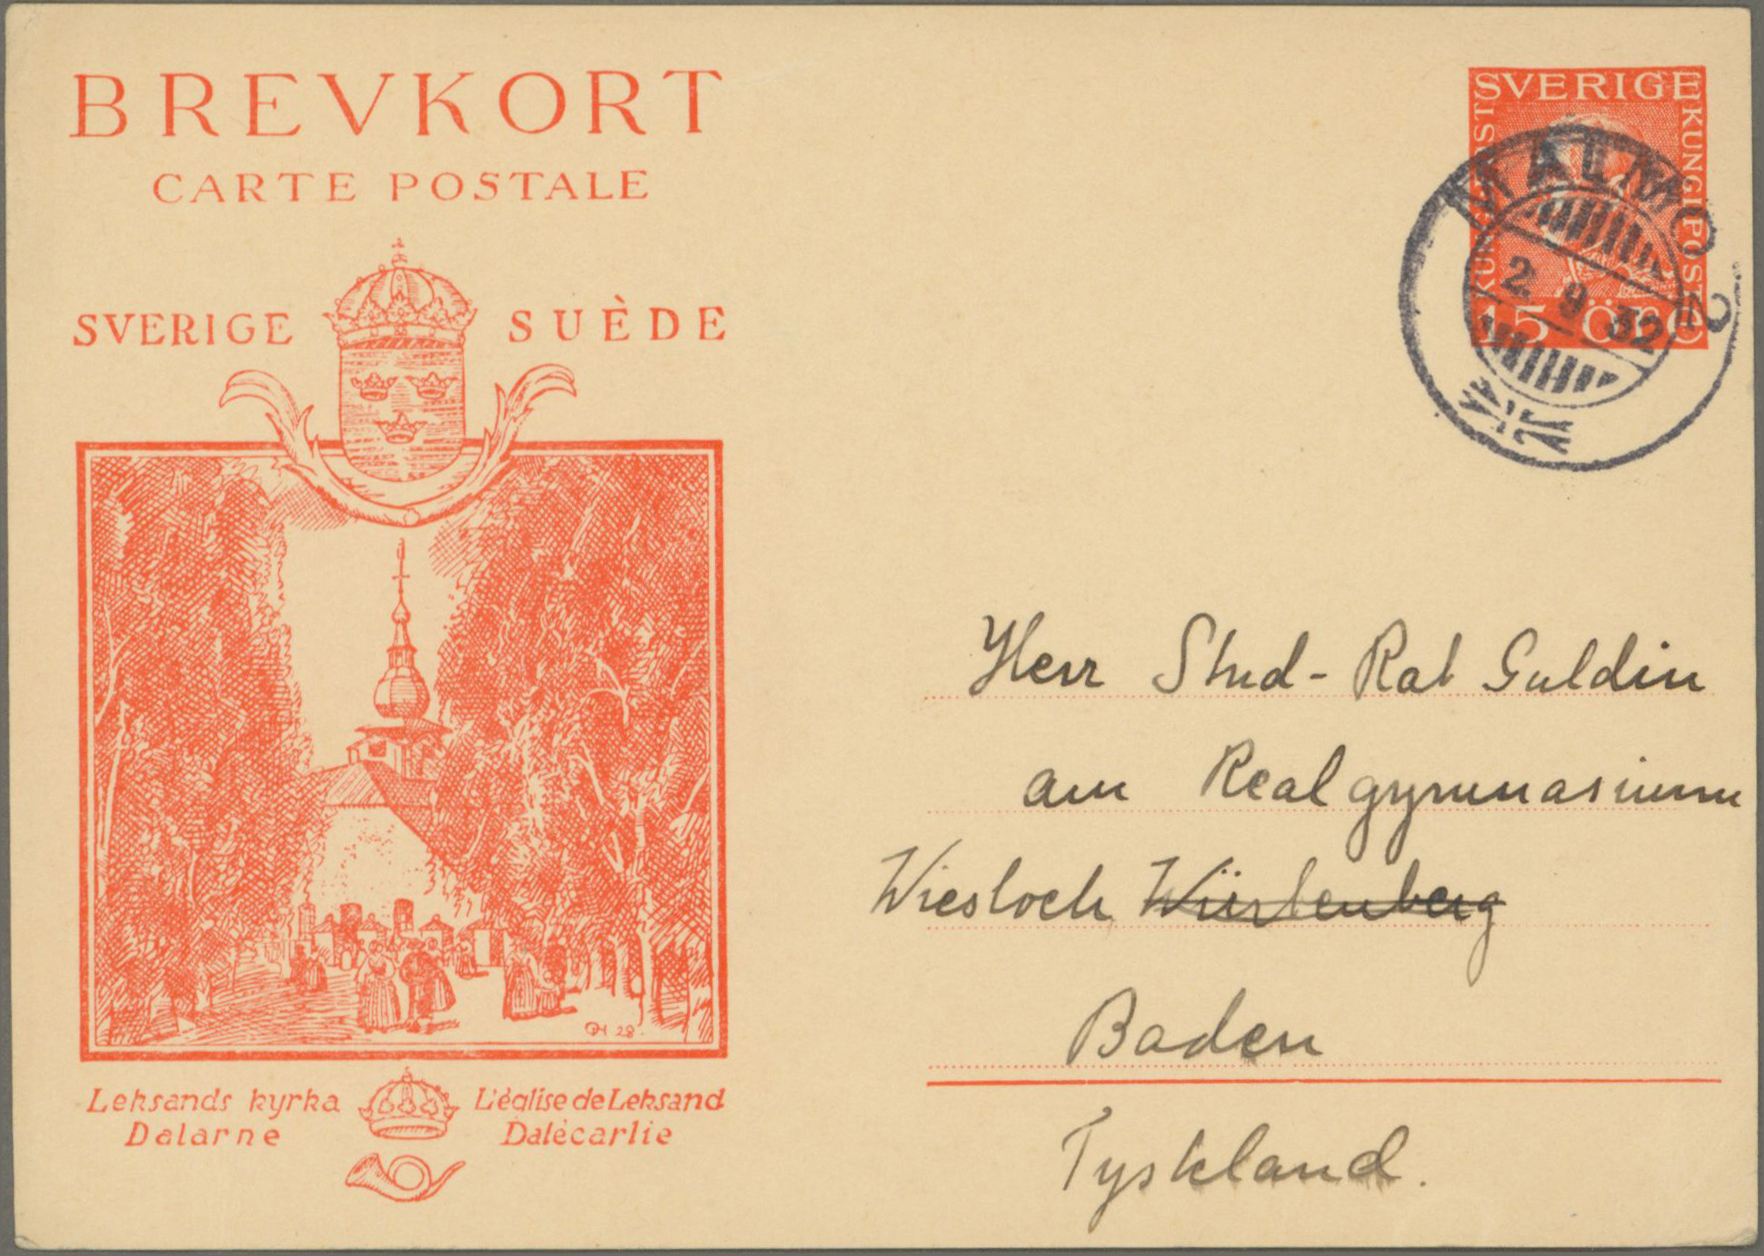 BREVKORT
CARTE POSTALE
SVERIGE SUÈDE
OH 28.
Leksands kyrka
Dalarne
L'église de Leksand
Dalécarlie
SVERIGE
KUNGL POST
KUNGL POST
15 ÖRE
MALMÖ 2
2. 9. 32
Herr Stud-Rat Guldin
am Realgymnasium
Wiesloch Würtenberg
Baden
Tyskland.